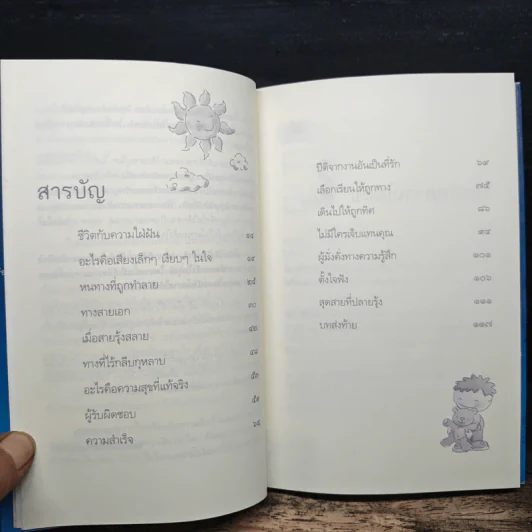 สารบัญ
ชีวิตกับความใฝ่ฝัน ๑๔
อะไรคือเสียงเล็กๆ เงียบๆ ในใจ ๑๙
หนทางที่ถูกทำลาย ๒๔
ทางสายเอก ๓๐
เมื่อสายรุ้งสลาย ๔๒
ทางที่ไร้กลีบกุหลาบ ๔๘
อะไรคือความสุขที่แท้จริง ๕๓
ผู้รับผิดชอบ ๕๙
ความสำเร็จ ๖๔
ปีติจากงานอันเป็นที่รัก ๖๙
เลือกเรียนให้ถูกทาง ๗๕
เดินไปให้ถูกทิศ ๘๖
ไม่มีใครเจ็บแทนคุณ ๙๔
ผู้มั่งคั่งทางความรู้สึก ๑๐๑
ตั้งใจฟัง ๑๐๖
สุดสายที่ปลายรุ้ง ๑๑๑
บทส่งท้าย ๑๑๗